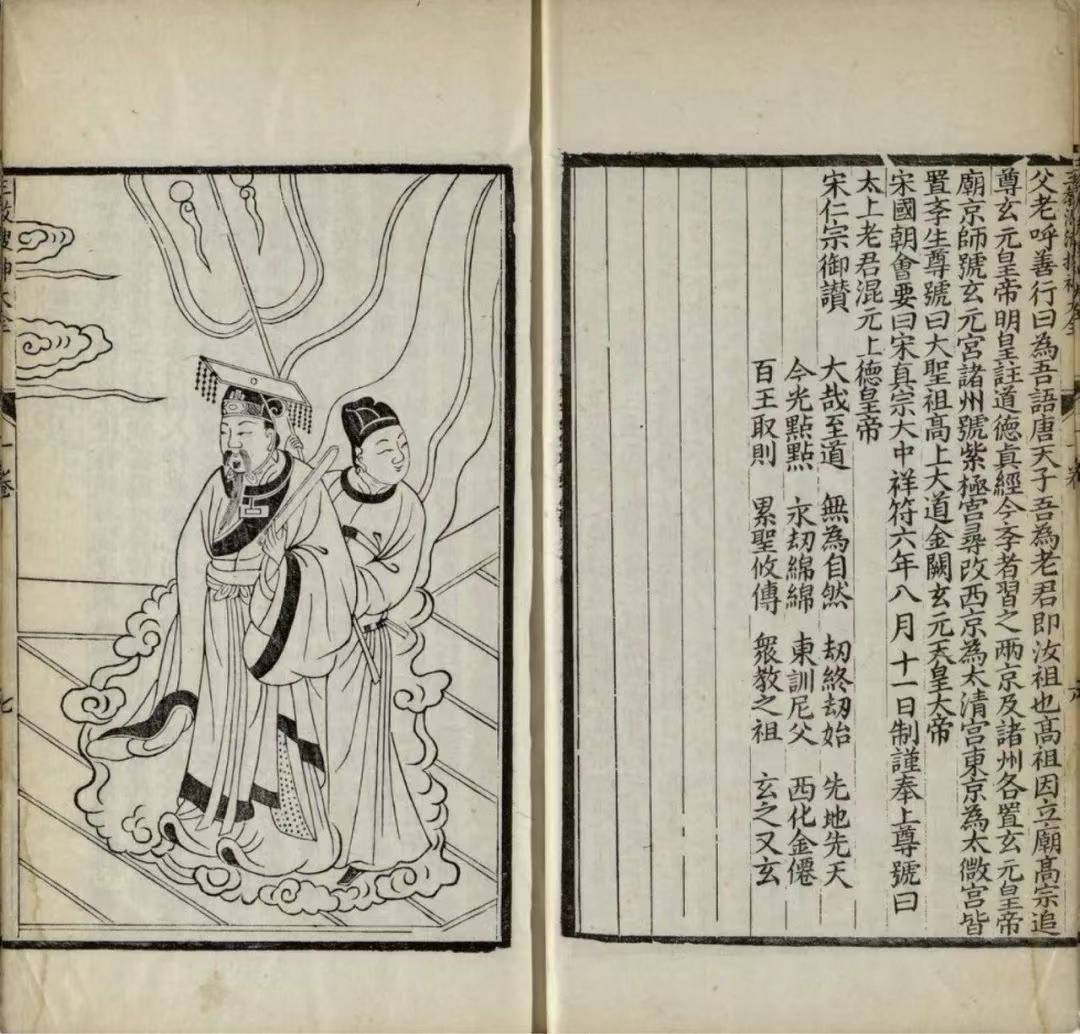 父老呼善行曰為吾語唐天子吾為老君即汝祖也髙祖因立廟髙宗追
尊玄元皇帝明皇註道德真經今斈者習之兩京及諸州各置玄元皇帝
廟京師號玄元宮諸州號紫極宮尋改西京為太清宮東京為太微宮皆
置斈生尊號曰大聖祖髙上大道金闕玄元天皇大帝
宋國朝會要曰宋真宗大中祥符六年八月十一日制謹奉上尊號曰
太上老君混元上德皇帝
宋仁宗御讃 大哉至道 無為自然 劫終劫始 先地先天
今光點點 永劫綿綿 東訓尼父 西化金僊
百王取則 累聖攸傳 衆教之祖 玄之又玄
搜神大全 一卷 七